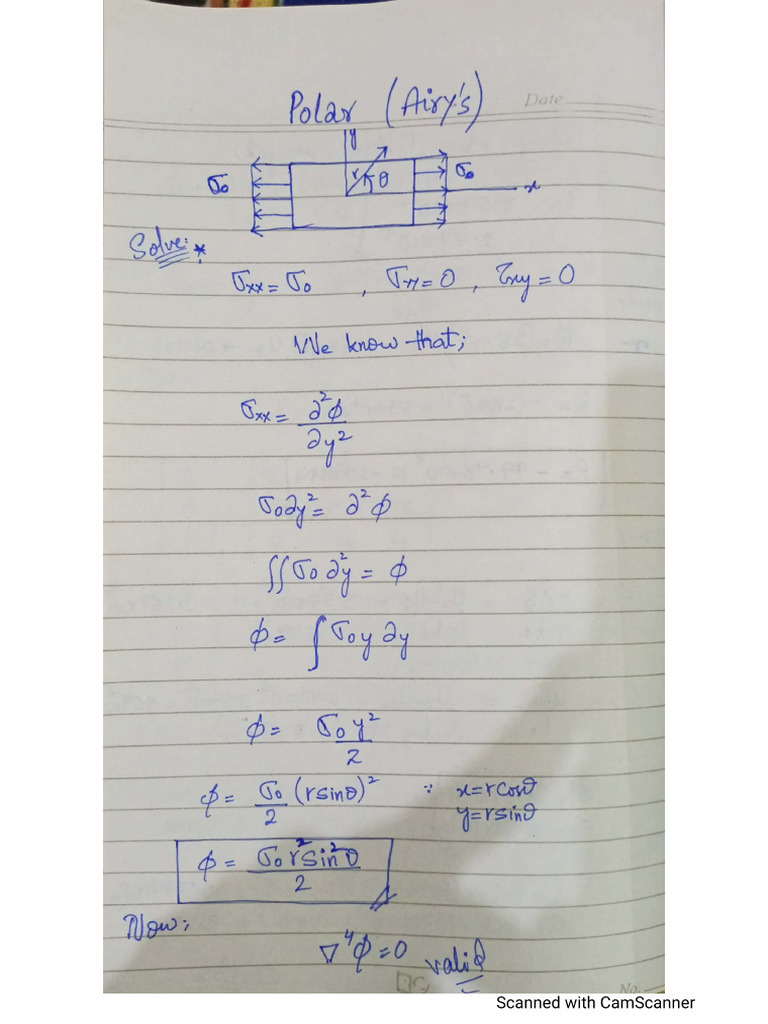 Date
Polar (Airy's)
y
σ₀ r θ σ₀ x
Solve:*
σxx = σ₀ , σyy = 0 , τxy = 0
We know that;
σxx = ∂²φ/∂y²
σ₀∂y² = ∂²φ
∫∫ σ₀ ∂²y = φ
φ = ∫ σ₀y ∂y
φ = σ₀y²/2
φ = σ₀/2 (r sinθ)² ∵ x = r cosθ
y = r sinθ
φ = σ₀r²sin²θ/2
Now:
∇⁴φ = 0 valid
No.
Scanned with CamScanner